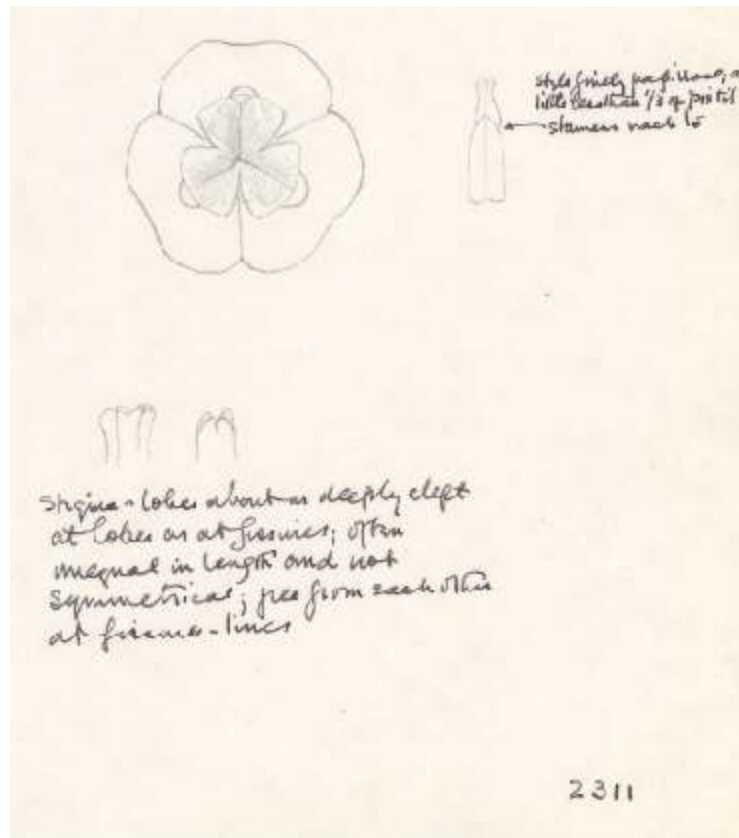 style finely papillose; a
little less than 1/3 of pistil
stamens reach to
Stigma-lobes about as deeply cleft
at lobes as at fissures; often
unequal in length and not
symmetrical; free from each other
at fissure-lines
2311